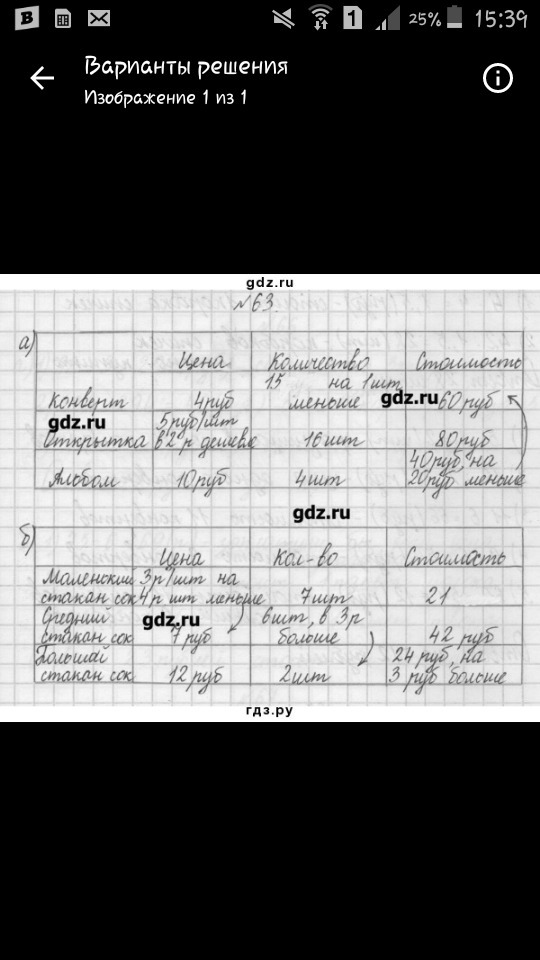 B 1 25% 15:39
Варианты решения
Изображение 1 из 1
gdz.ru
№63.
а)
Цена Количество Стоимость
15 на 1шт
Конверт 4руб меньше gdz.ru 60руб
gdz.ru 5руб/шт
Открытка в 2 р дешевле 16шт 80руб
40руб, на
Альбом 10руб 4шт 20руб меньше
gdz.ru
б)
Цена Кол-во Стоимость
Маленький 3р/шт на
стакан сок 4р шт меньше 7шт 21
Средний gdz.ru 6шт, в 3р
стакан сок 7руб больше 42 руб
Большай 24 руб, на
стакан сок 12 руб 2шт 3 руб больше
гдз.ру